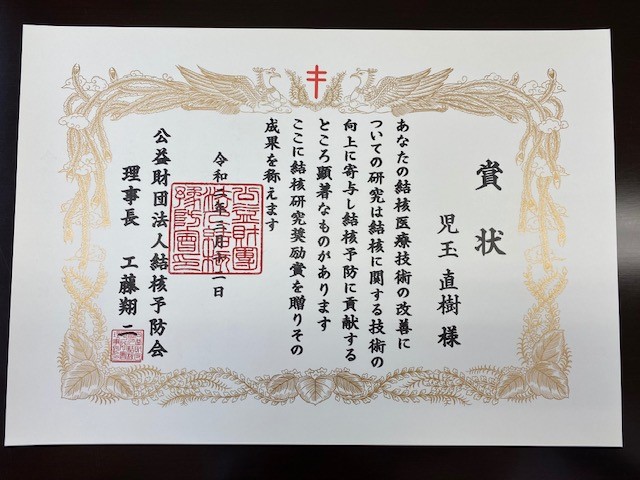 賞状
児玉 直樹 様
あなたの結核医療技術の改善に
ついての研究は結核に関する技術の
向上に寄与し結核予防に貢献する
ところ顕著なものがあります
ここに結核研究奨励賞を贈りその
成果を称えます
令和 年三月 二日
公益財団法人結核予防会
理事長 工藤翔二